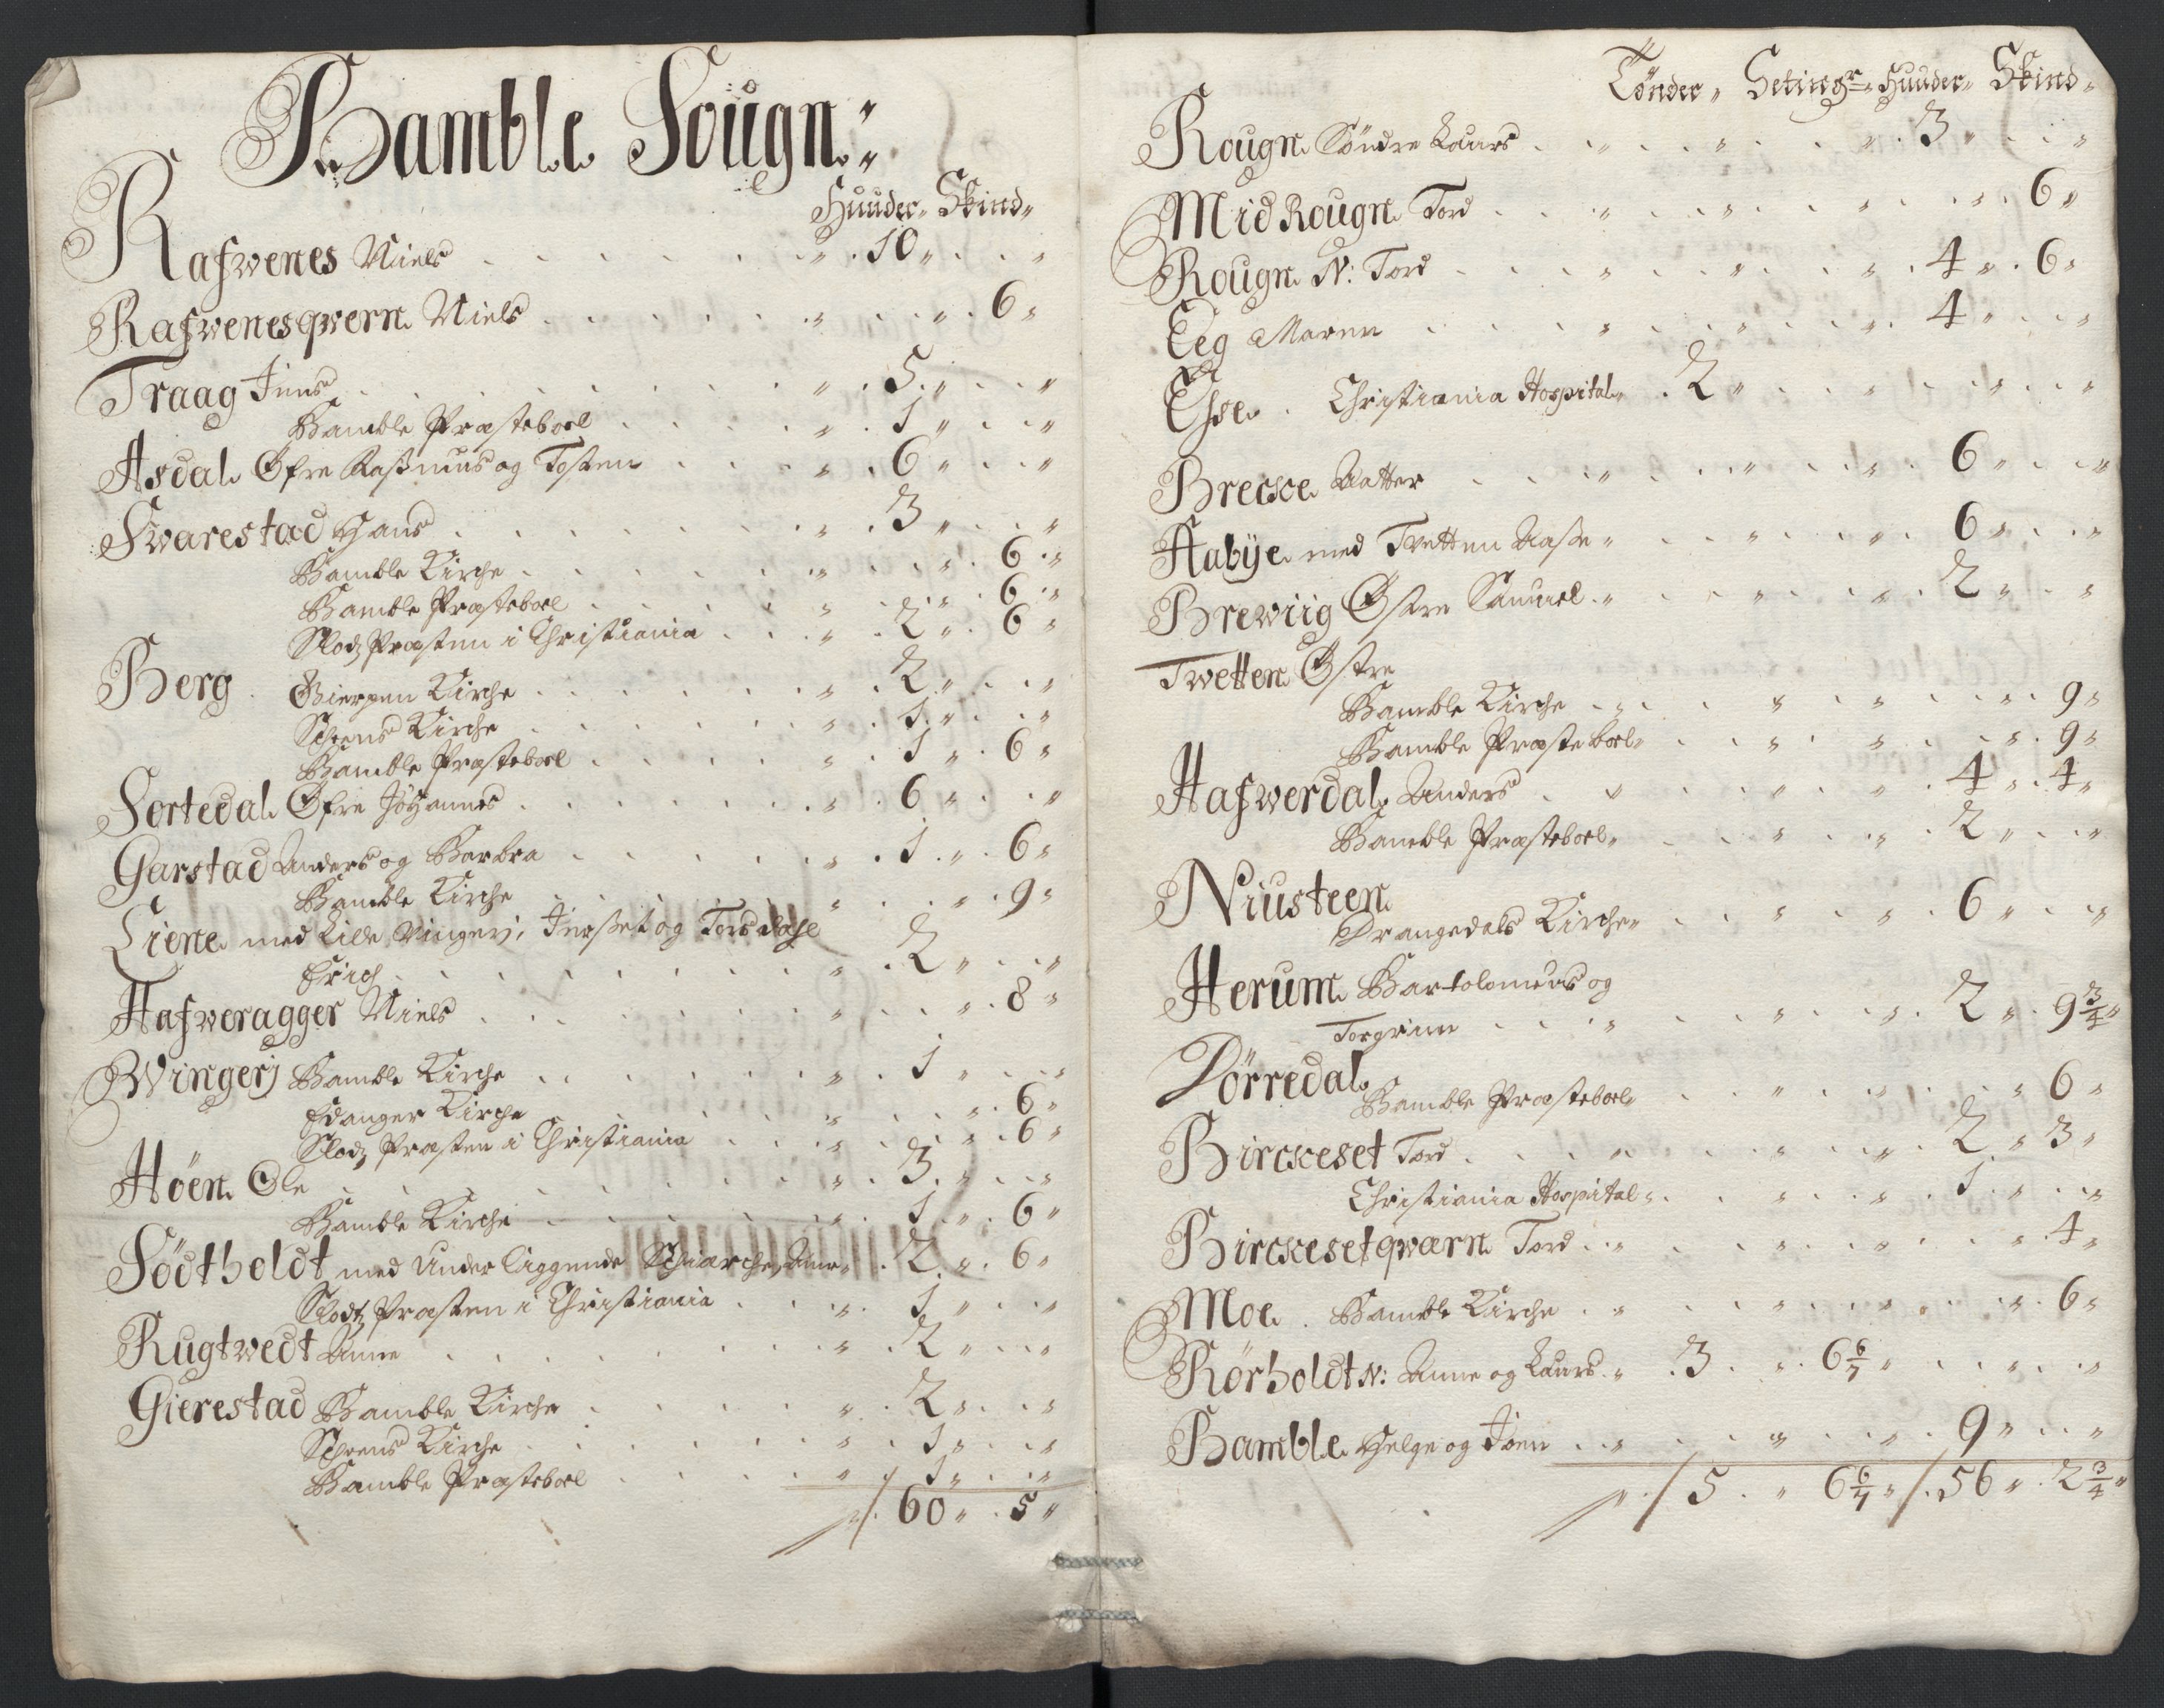 Bamble Sougn:
Huuder„ Skind„
Rafwenes Niels „ 10 „ „
Rafwenesqwern Niels „ „ 6 „
Traag Jens „ 5 „ „
Bamble Præsteboel „ 1 „ „
Asdal Øfre Rasmus og Tosten „ 6 „ „
Swarestad Hans „ 3 „ „
Bamble Kirche „ „ 6 „
Bamble Præsteboel „ „ 6 „
Slodz Præsten i Christiania „ 2 „ 6 „
Berg Gierpen Kirche „ 2 „ „
Scheens Kirche „ 1 „ „
Bamble Præsteboel „ 1 „ 6 „
Sortedal Øfre Johannes „ 6 „ „
Garstad Anders og Barbra „ 1 „ 6 „
Bamble Kirche „ „ 9 „
Liene med Lille Vingerj, og
Erich „ 2 „ „
Hafweragger Niels „ „ 8 „
Wingerj Bamble Kirche „ 1 „ „
Edanger Kirche „ „ 6 „
Slodz Præsten i Christiania „ „ 6 „
Høen Ole „ 3 „ „
Bamble Kirche „ 1 „ 6 „
Södtholdt med Underliggende „ 2 „ 6 „
Slodtz Præsten i Christiania „ 1 „ „
Rugtwedt Anne „ 2 „ „
Gierestad Bamble Kirche „ 2 „ „
Scheens Kirche „ 1 „ „
Bamble Præsteboel „ 1 „ „
„ 60 „ 5 „
Tönder„ Setingr„ Huuder„ Skind„
Rougn Söndre Laurs „ „ „ 3 „ „
Mid Rougn Tord „ „ „ „ 6 „
Rougn N: Tord „ „ „ 4 „ 6 „
Eeg Maren „ „ „ 4 „ „
Christiania Hospital „ 2 „ „ „ „
Brecke Aatter „ „ „ 6 „ „
Aabÿe med Twetten Aasse „ „ „ 6 „ „
Brewiig Østre Samuel „ „ „ 2 „ „
Twetten Østre
Bamble Kirche „ „ „ „ 9 „
Bamble Præsteboel „ „ „ „ 9 „
Hafwerdal Anders „ „ „ 4 „ 4 „
Bamble Præsteboel „ „ „ 2 „ „
Niusteen
Drangedals Kirche „ „ „ 6 „ „
Herum Bartolomeus og
Torgrim „ „ „ 2 „ 9 3/4 „
Dörredal
Bamble Præsteboel „ „ „ „ 6 „
Birckeset Tord „ „ „ 2 „ 3 „
Christiania Hospital „ „ „ 1 „ „
Birckesetqwarn Tord „ „ „ „ 4 „
Moe Bamble Kirche „ „ „ „ 6 „
Rörholdt N: Anne og Laurs „ 3 „ 6 6/7 „ „ „
Bamble Helge og Joen „ „ „ 9 „ „
„ 5 „ 6 6/7 „ 56 „ 2 3/4 „